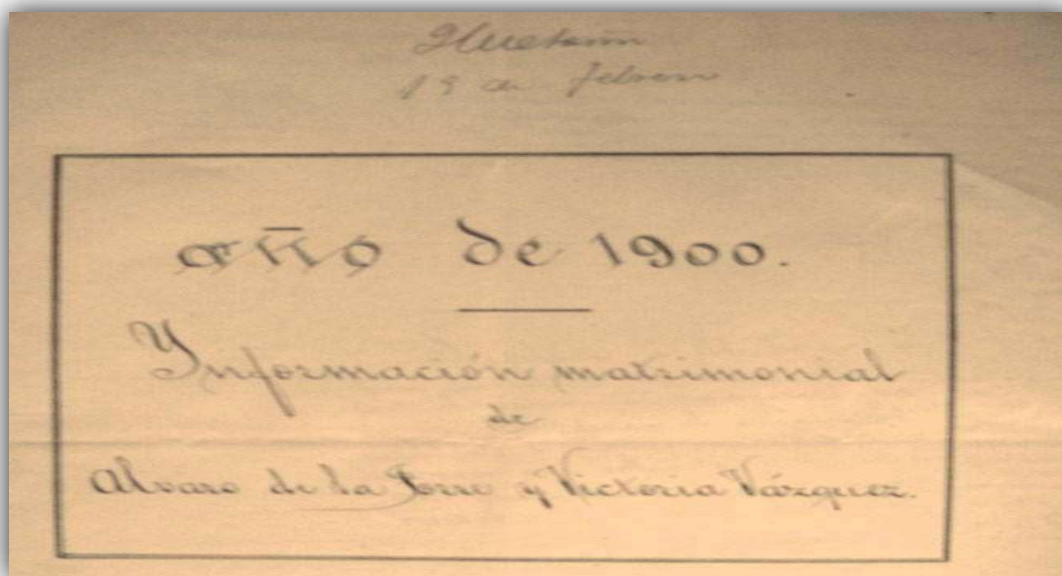 19 de febrero
año de 1900.
Ynformación matrimonial
de
Alvaro de la Torre y Victoria Vázquez.